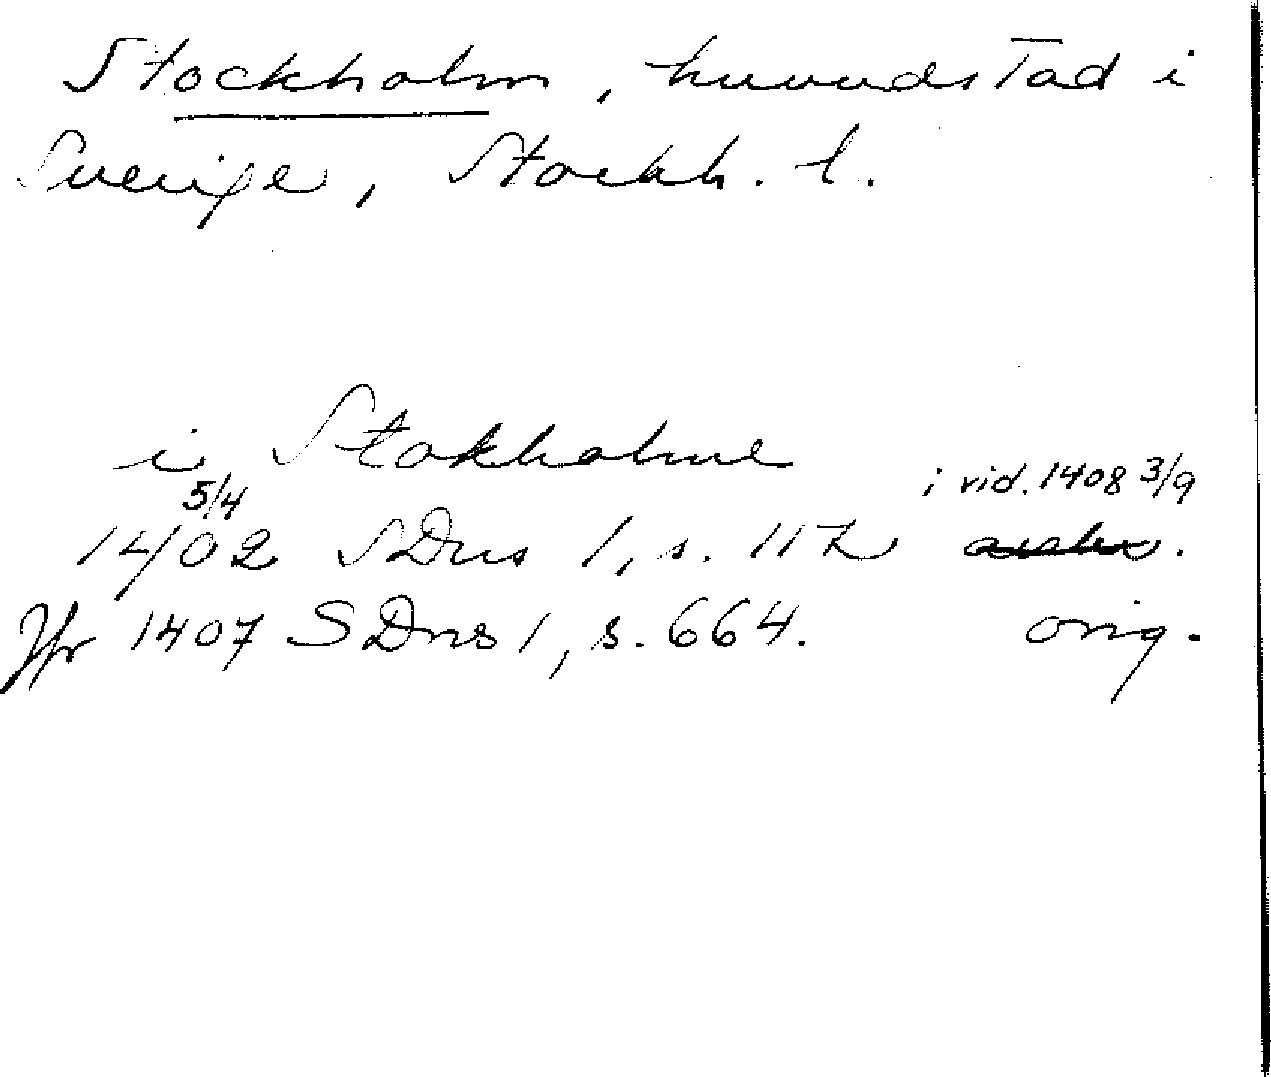 Stockholm, huvudstad i
Sverige, Stockh. l.
i Stokholme
5/4 i vid. 1408 3/9
1402 SDns 1, s. 112
Jfr 1407 SDns 1, s. 664. orig.